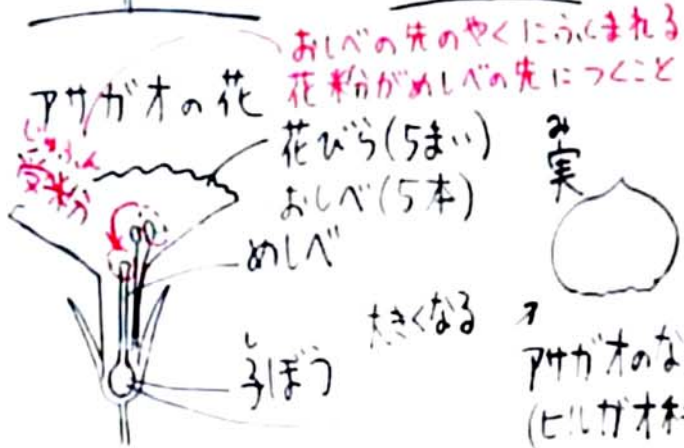 おしべの先のやくにふくまれる
花粉がめしべの先につくこと
アサガオの花
じゅふん
受粉
花びら(5まい)
おしべ(5本)
めしべ
し
子ぼう
大きくなる
み
実
アサガオのな
(ヒルガオ科